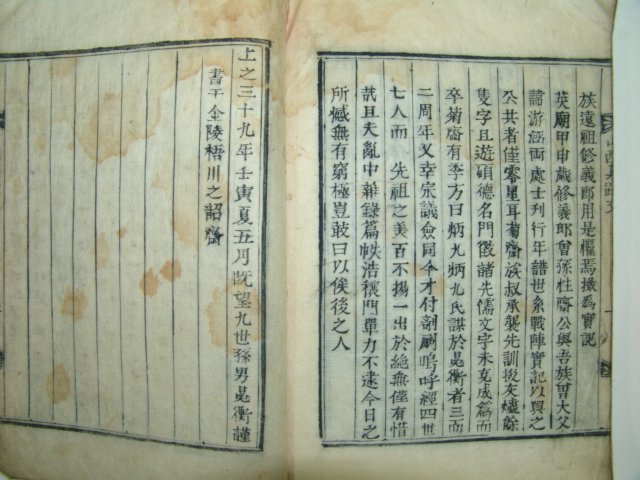 族遠祖修義郎用是懼焉撮爲實記
英廟甲申歲修義郎曾孫牲齋公與吾族曾大父
諦游涵兩處士刋行年譜世系戰陣實記以與之
公共者僅零星耳菊齋族叔承襲先訓後灰燼餘
隻字且遊碩德名門徵諸先儒文字未克成篇而
卒菊齋有季方曰炳九炳九氏謀於晃衡者三而
二周年又幸宗議僉同今才付剞劂嗚呼經四世
七人而 先祖之美百不揚一出於絶無僅有惜
哉且夫亂中雜錄篇帙浩穰門單力不逮今日之
所憾無有窮極豈敢曰以俟後之人
上之三十九年壬寅夏五月旣望九世孫男晃衡謹
書于金陵梧川之韶齋